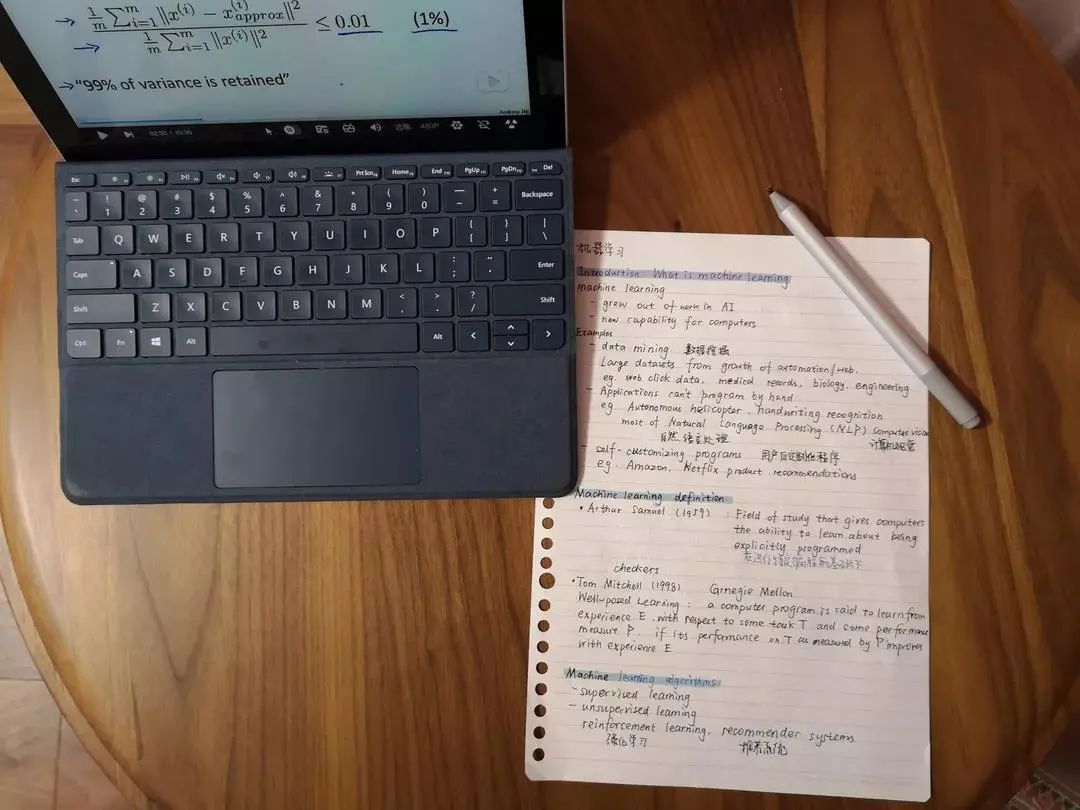 → 1/m ∑ᵢ₌₁ᵐ ‖x⁽ⁱ⁾ − x⁽ⁱ⁾approx‖²
→ 1/m ∑ᵢ₌₁ᵐ ‖x⁽ⁱ⁾‖²
≤ 0.01 (1%)
→ "99% of variance is retained"
Andrew Ng
02:50 / 10:30 480P
Esc PrtScn Home End PgUp PgDn Del
~ ` ! 1 @ 2 # 3 $ 4 % 5 ^ 6 & 7 * 8 ( 9 ) 0 — - + = Backspace
Tab Q W E R T Y U I O P { [ } ] | \
Caps A S D F G H J K L : ; " ' Enter
Shift Z X C V B N M < , > . ? / Shift
Ctrl Fn Alt Alt
机器学习
Introduction: What is machine learning
machine learning
- grew out of work in AI
- new capability for computers
Examples
- data mining 数据挖掘
Large datasets from growth of automation/web.
eg. web click data, medical records, biology, engineering
- Applications can't program by hand
eg. Autonomous helicopter, handwriting recognition
most of Natural Language Processing (NLP) computer vision
自然语言处理 计算机视觉
- self-customizing programs 用户自定制化程序
eg. Amazon, Netflix product recommendations
Machine learning definition
• Arthur Samuel (1959) : Field of study that gives computers
the ability to learn about being
explicitly programmed
checkers
• Tom Mitchell (1998) Carnegie Mellon
Well-posed Learning : a computer program is said to learn from
experience E with respect to some task T and some performance
measure P. if its performance on T as measured by P improves
with experience E
Machine learning algorithms
- supervised learning
- unsupervised learning
reinforcement learning, recommender systems
强化学习 推荐系统